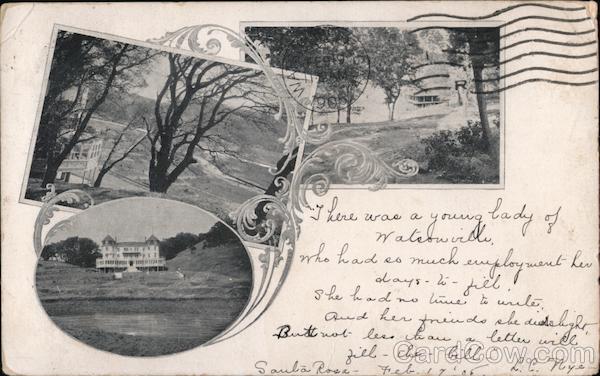 "There was a young lady of
Watsonville,
Who had so much employment her
days-to-fill.
She had no time to write,
And her friends she did slight,
But not less than a letter will
fill-the-bill.
Santa Rosa - Feb. 17 '05 L.E. Nye
CardCow.com